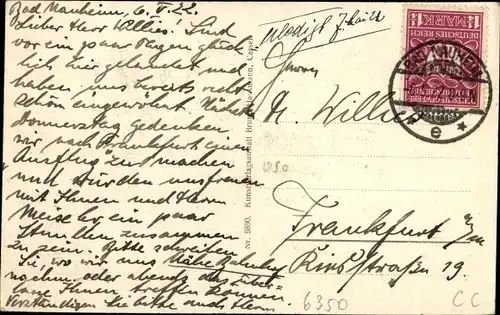 Bad Nauheim, 6. V. 22.
Lieber Herr Willies! Sind
vor ein paar Tagen glück
lich hier gelandet und
haben uns bereits recht
schön eingewöhnt. Nächsten
Donnerstag gedenken
wir nach Frankfurt einen
Ausflug zu machen
und würden uns freuen
mit Ihnen und Herrn
Meisel ein paar
Stunden zusammen
zu sein. Bitte schreiben
Sie, wo wir uns
nachm. oder abends
mit Ihnen treffen können.
Verständigen Sie bitte auch Herrn
Nr. 9890. Kunstverlagsanstalt Bruno Hansmann, Cassel
erledigt
Herrn
Willies
Frankfurt a/m
19.
6350
CC
DEUTSCHES REICH
MARK
1¼
BAD-NAUHEIM
e